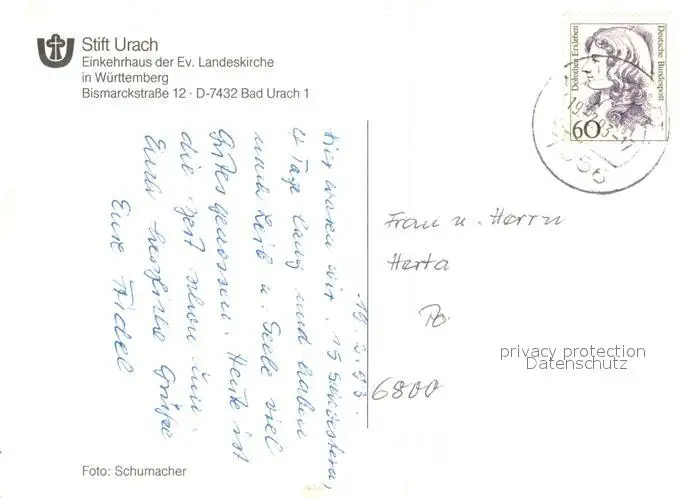 Stift Urach
Einkehrhaus der Ev. Landeskirche
in Württemberg
Bismarckstraße 12 · D-7432 Bad Urach 1
Deutsche Bundespost
Dorothea Erxleben
60
19.2.93.
Hier waren wir, 15 Schwestern,
4 Tage lang und haben
mit Leib u. Seele viel
Gutes genossen. Heute ist
die Zeit schon um.
Euch herzliche Grüße
Eure Fidel
Frau u. Herrn
Herta
Po
6800
privacy protection
Datenschutz
Foto: Schumacher